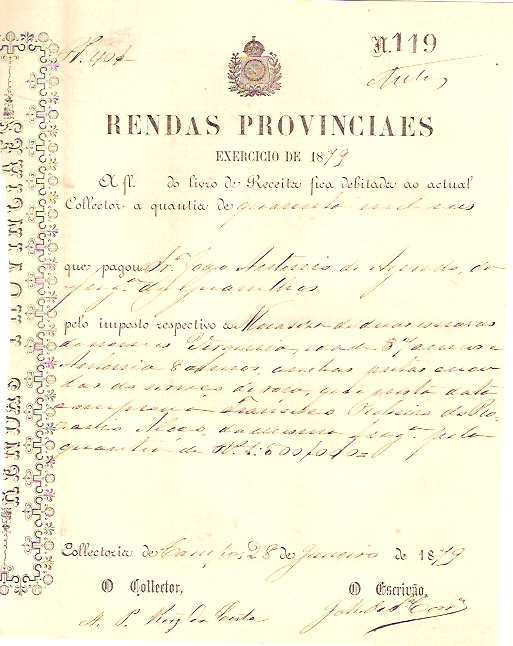 Nº 404
N. 119
RENDAS PROVINCIAES
EXERCICIO DE 1879
A fl. do livro de Receita fica debitada ao actual
Collector a quantia de quarenta mil reis
que pagou o Sr. João Antonio de Azevedo, da
freg.ª de Guarulhos
pelo imposto respectivo a de duas escravas
de nomes Virginia, idade 37 annos e
Antonia 8 annos, ambas pretas
do serviço de roça, que nesta data
comprou a Francisco Ribeiro do
da mesma freg.ª pela
quantia de Rs. 1:600$000=
Collectoria de Campos, 28 de Janeiro de 1879
O Collector, O Escrivão,
RENDAS PROVINCIAES